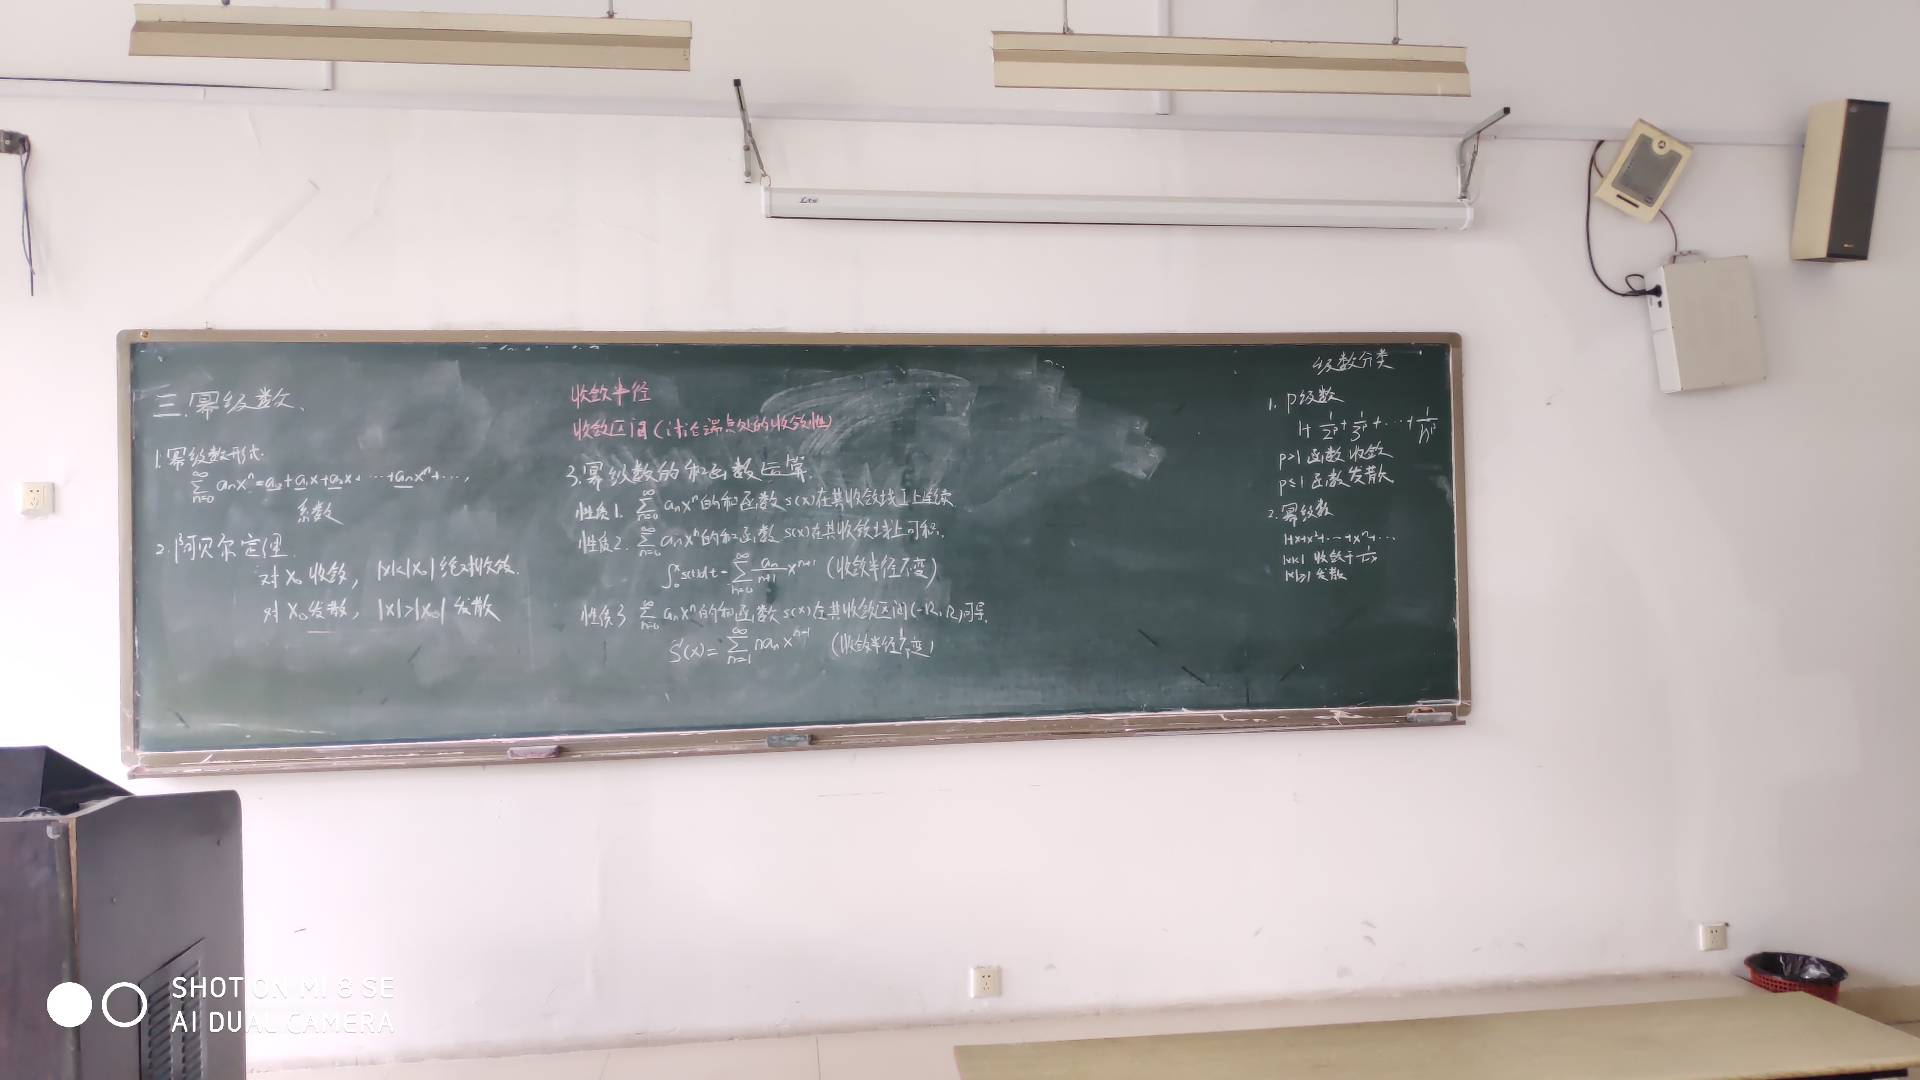 三.幂级数、
1.幂级数形式.
∑_{n=0}^{∞} aₙxⁿ=a₀+a₁x+a₂x+⋯+aₙxⁿ+⋯,
系数
2.阿贝尔定理.
对 x₀ 收敛, |x|<|x₀| 绝对收敛.
对 x₀ 发散, |x|>|x₀| 发散
收敛半径
收敛区间(讨论端点处的收敛性)
3.幂级数的和函数运算.
性质1. ∑_{n=0}^{∞} aₙxⁿ的和函数 s(x)在其收敛域I上连续
性质2. ∑_{n=0}^{∞} aₙxⁿ的和函数 s(x)在其收敛域上可积.
∫₀ˣ s(t)dt=∑_{n=0}^{∞} aₙ/(n+1) xⁿ⁺¹ (收敛半径不变)
性质3 ∑_{n=0}^{∞} aₙxⁿ的和函数 s(x)在其收敛区间(-R,R)可导.
S'(x)=∑_{n=1}^{∞} naₙxⁿ⁻¹ (收敛半径不变)
级数分类
1. P级数
1+1/2ᵖ+1/3ᵖ+⋯+1/nᵖ
p>1 函数收敛
p≤1 函数发散
2.幂级数
1+x+x²+⋯+xⁿ+⋯
|x|<1 收敛于1/(1-x)
|x|≥1 发散
SHOT ON MI 8 SE
AI DUAL CAMERA